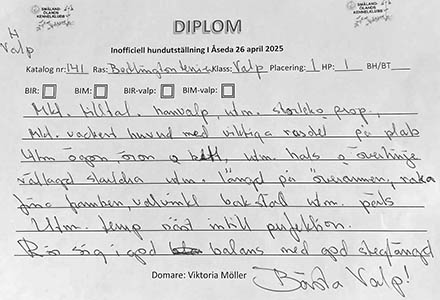 SMÅLAND-
ÖLANDS
KENNELKLUBB
SMÅLAND-
ÖLANDS
KENNELKLUBB
H
Valp
DIPLOM
Inofficiell hundutställning I Åseda 26 april 2025
Katalog nr: 141 Ras: Bedlingtonterrier Klass: Valp Placering: 1 HP: 1 BH/BT
BIR: BIM: BIR-valp: BIM-valp:
Mkt. tilltal. hanvalp, utm. storlek o prop.
Mkt. vackert huvud med viktiga rasdet på plats
Utm ögon öron o bett, utm. hals o överlinje
vällagd skuldra utm. längd på överarmen, raka
fina framben, välvinkl bakställ utm. päls
Utm. temp näst intill perfektion.
Rör sig i god balans med god steglängd
Domare: Viktoria Möller
Bästa Valp!